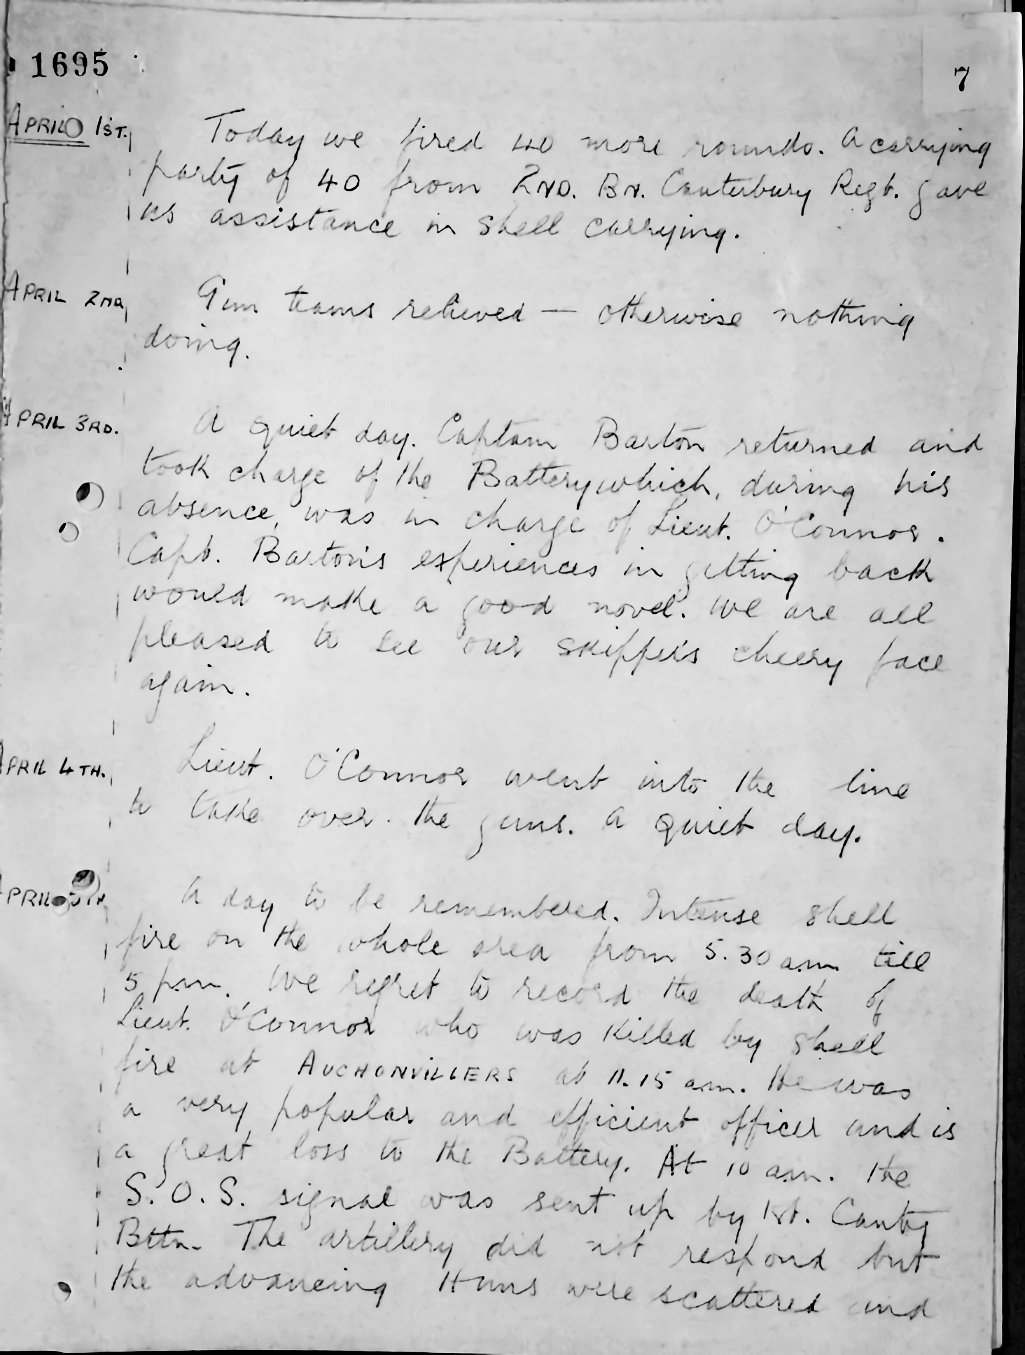 1695
7
APRIL 1ST.
Today we fired 40 more rounds. A carrying
party of 40 from 2ND. BN. Canterbury Regt. gave
us assistance in shell carrying.
APRIL 2ND
Gun teams relieved — otherwise nothing
doing.
APRIL 3RD.
A quiet day. Captain Barton returned and
took charge of the Battery which, during his
absence, was in charge of Lieut. O'Connor.
Capt. Barton's experiences in getting back
would make a good novel. We are all
pleased to see our skipper's cheery face
again.
APRIL 4TH.
Lieut. O'Connor went into the line
to take over the guns. A quiet day.
APRIL 5TH
A day to be remembered. Intense shell
fire on the whole area from 5.30 am till
5 p.m. We regret to record the death of
Lieut. O'Connor who was killed by shell
fire at AUCHONVILLERS at 11.15 a.m. He was
a very popular and efficient officer and is
a great loss to the Battery. At 10 am. the
S.O.S. signal was sent up by 1st. Canty
Bttn. The artillery did not respond but
the advancing Huns were scattered and